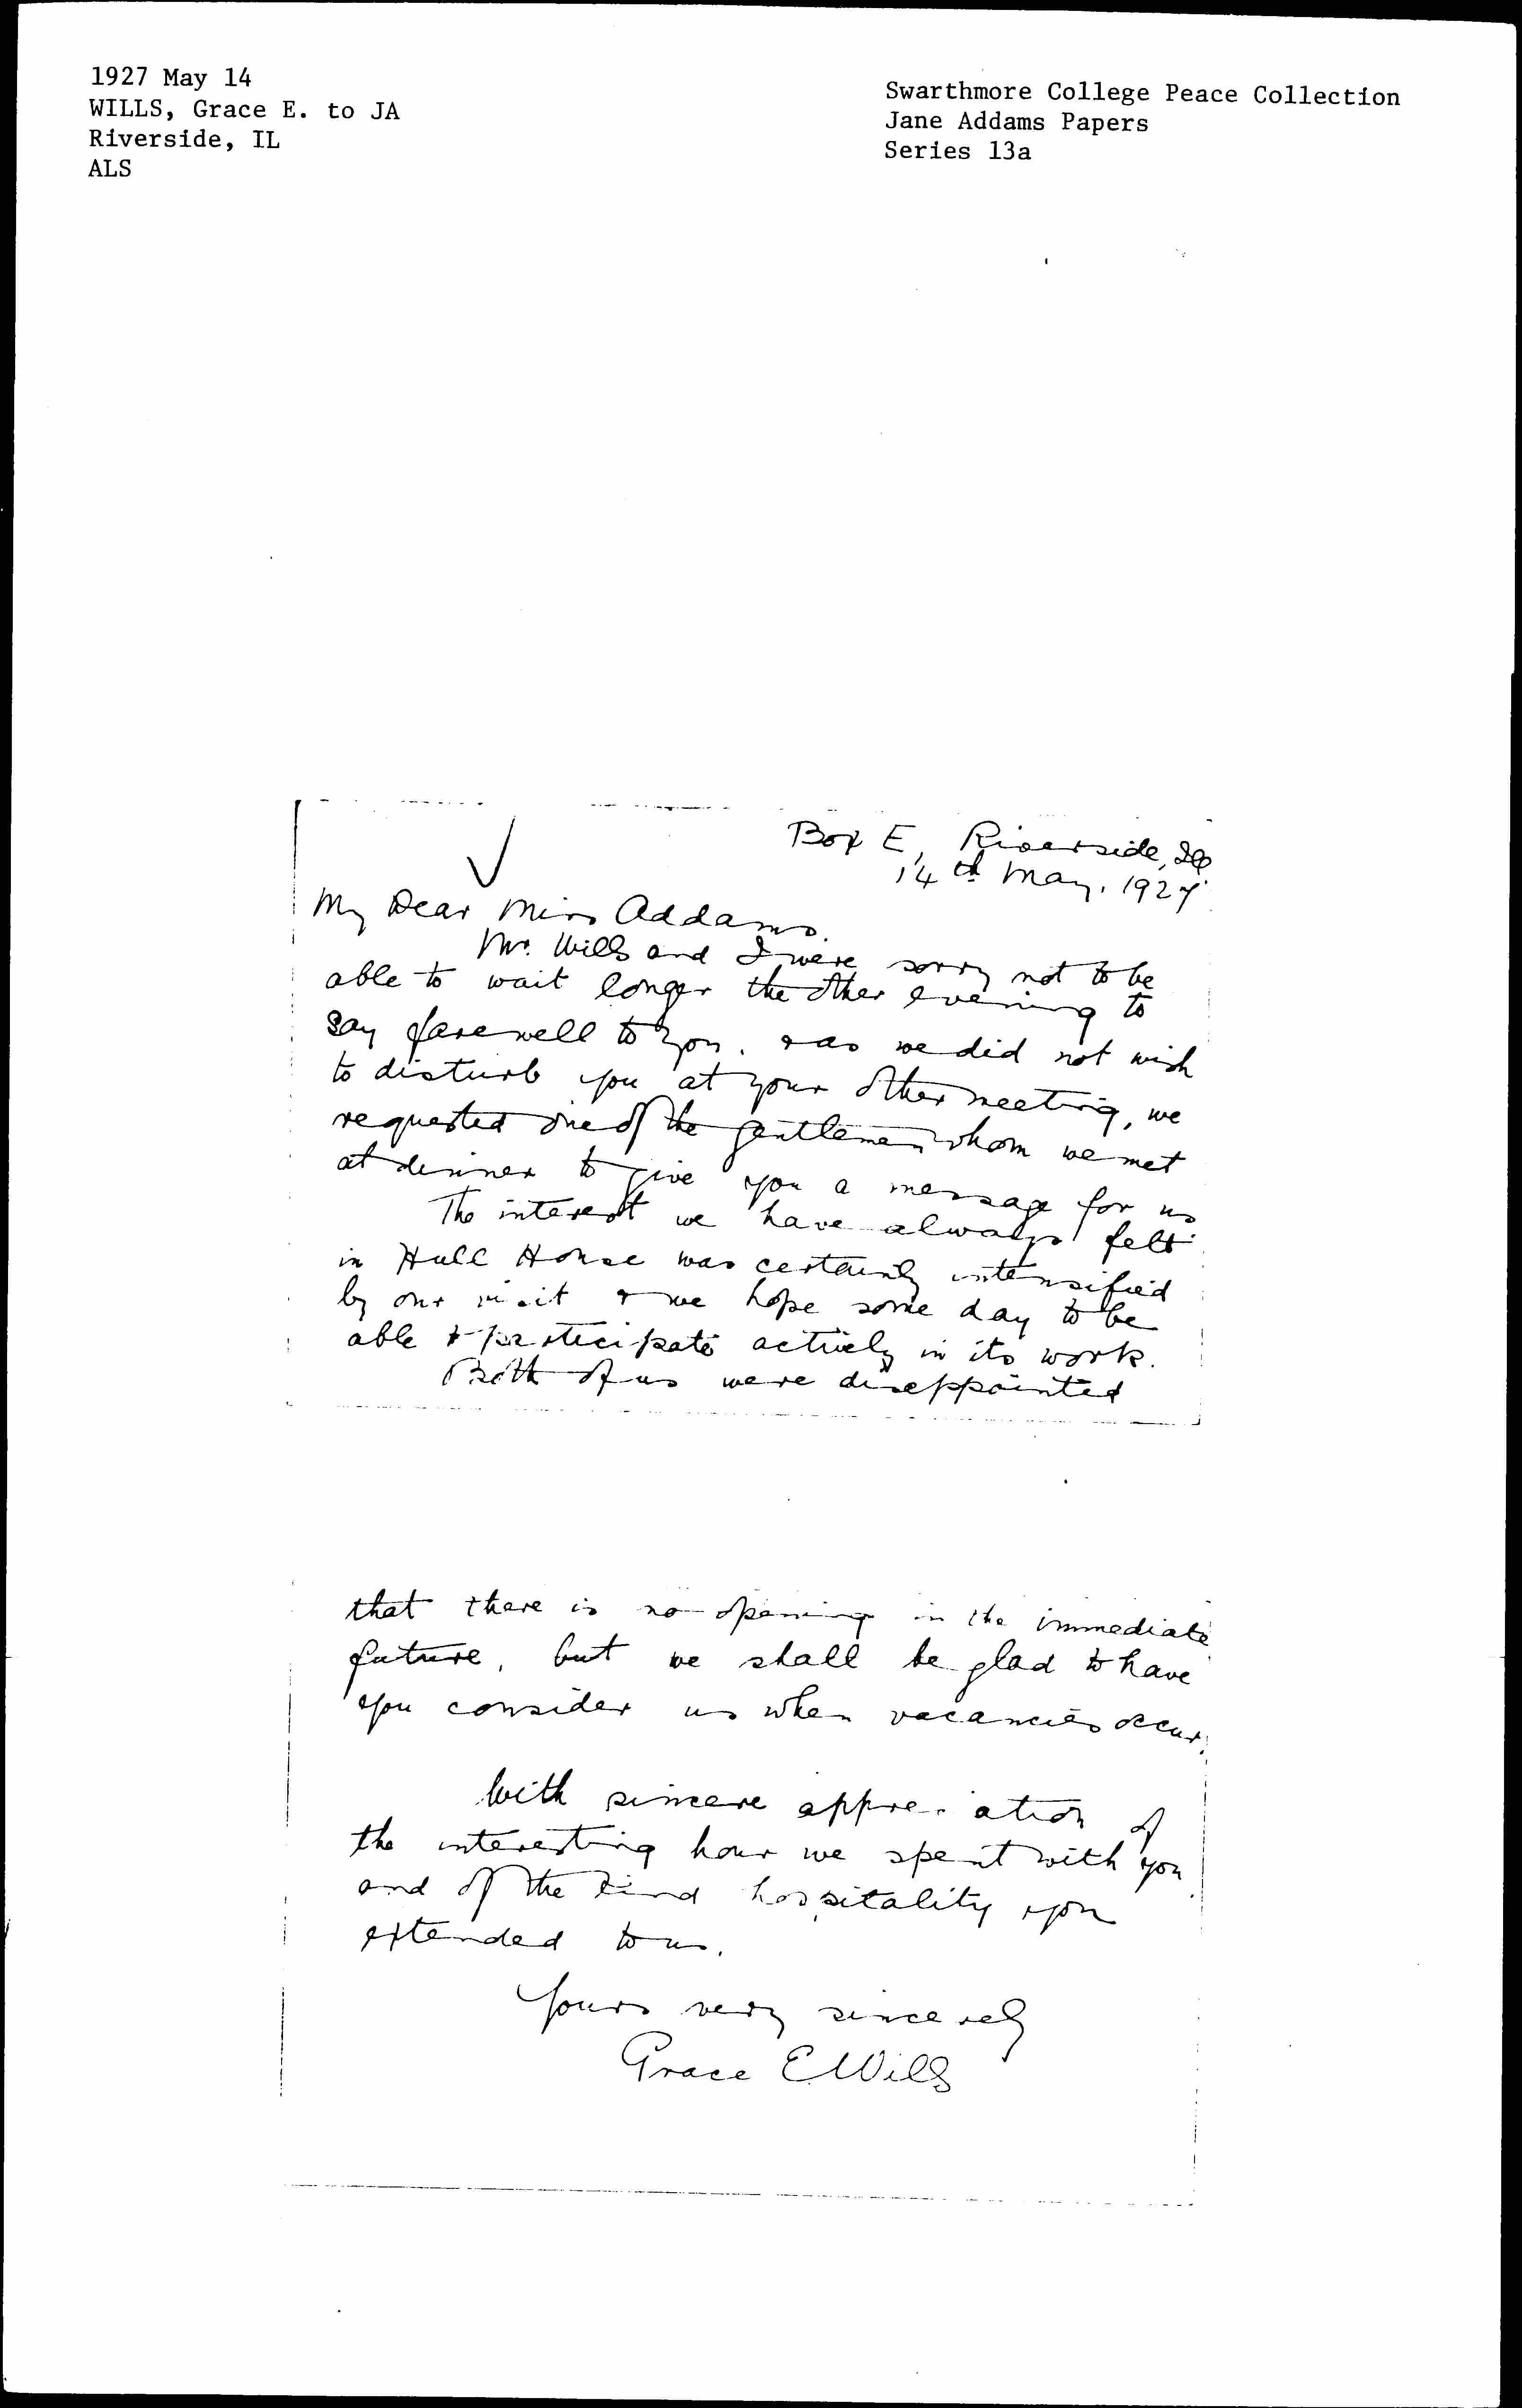 1927 May 14
WILLS, Grace E. to JA
Riverside, IL
ALS
Swarthmore College Peace Collection
Jane Addams Papers
Series 13a
Box E, Riverside, Ill
14th May, 1927.
My Dear Miss Addams.
Mr. Wills and I were sorry not to be
able to wait longer the other evening to
say farewell to you. & as we did not wish
to disturb you at your other meeting, we
requested one of the gentlemen whom we met
at dinner to give you a message for us
The interest we have always felt
in Hull House was certainly intensified
by our visit & we hope some day to be
able to participate actively in its work.
Both of us were disappointed
that there is no opening in the immediate
future, but we shall be glad to have
you consider us when vacancies occur.
With sincere appreciation of
the interesting hour we spent with you
and of the kind hospitality you
extended to us.
Yours very sincerely
Grace E Wills